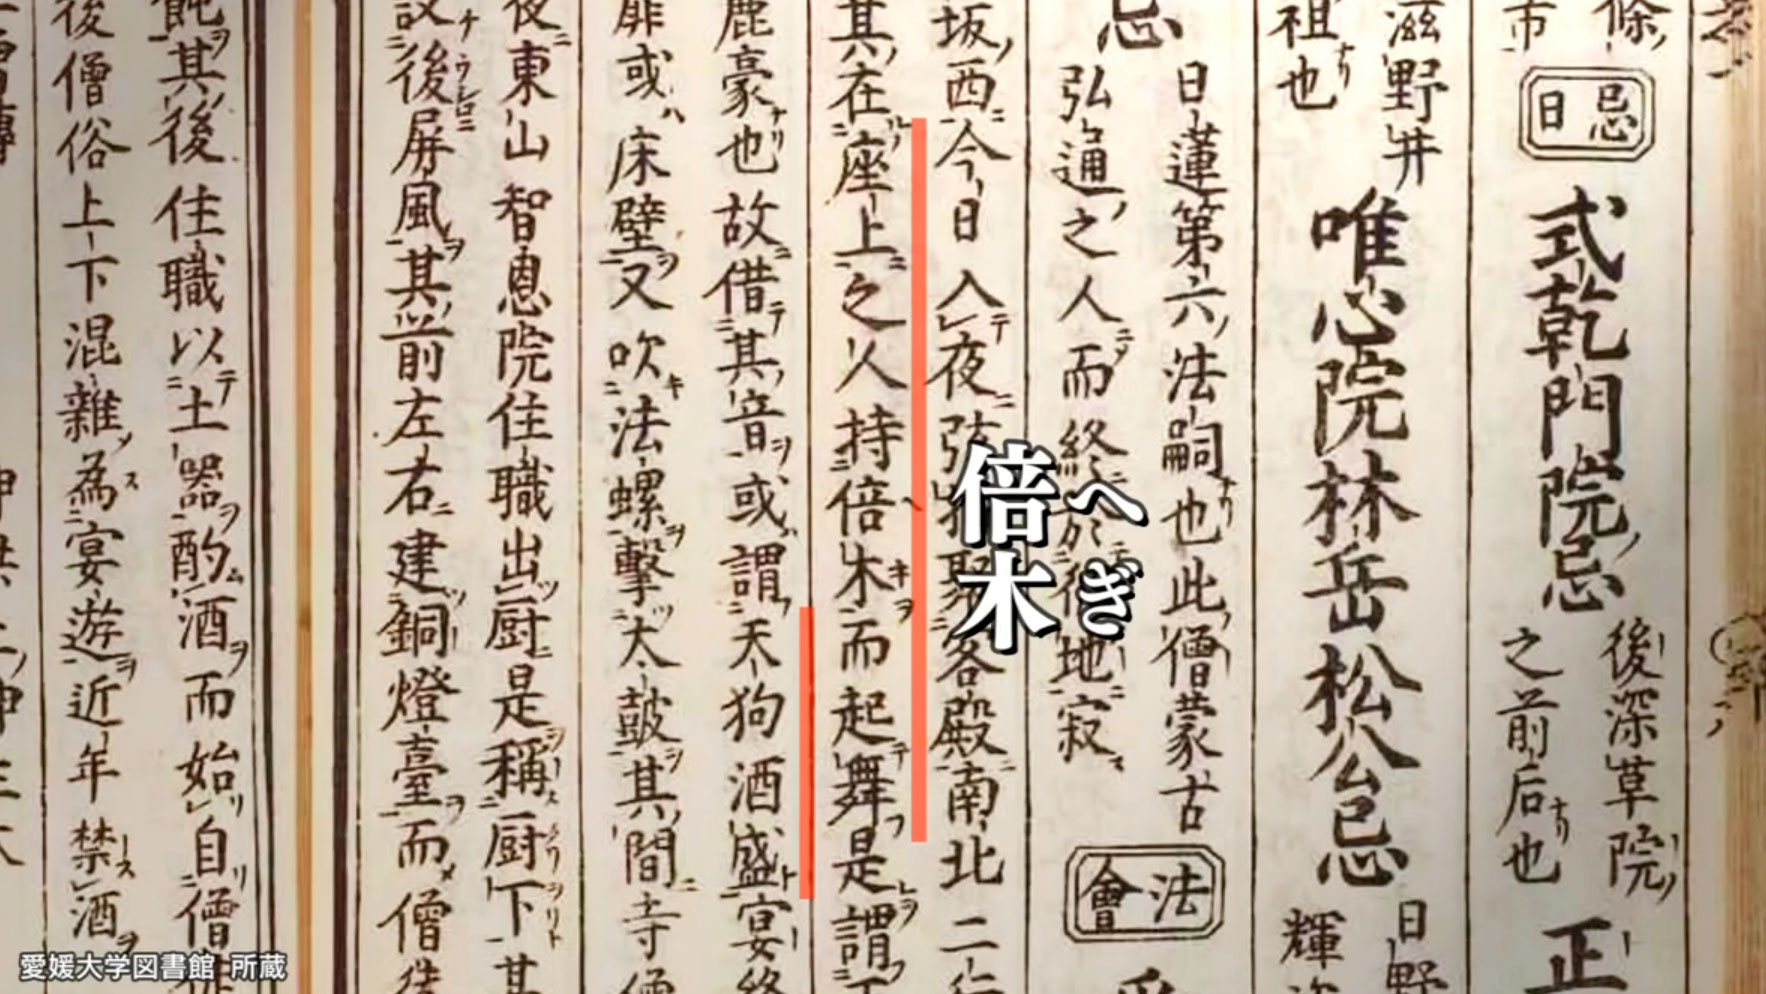 條
市
忌日
式乾門院忌
後深草院
之前后也
正
滋野井
祖也
唯心院林岳松公忌
日野
輝
忌
日蓮第六法嗣也此僧蒙古
弘通之人而終於彼地寂
法會
坂西今日入夜弦
各殿南北二
其在座上之人持倍木而起舞是謂
鹿豪也故借其音或謂天狗酒盛宴終
扉或床壁又吹法螺擊太鼓其間寺僧
夜東山智恩院住職出厨是稱厨下其
設後屏風其前左右建銅燈臺而僧
飩其後住職以土器酌酒而始自僧
後僧俗上下混雜為宴遊近年禁酒
倍木
へぎ
愛媛大学図書館 所蔵